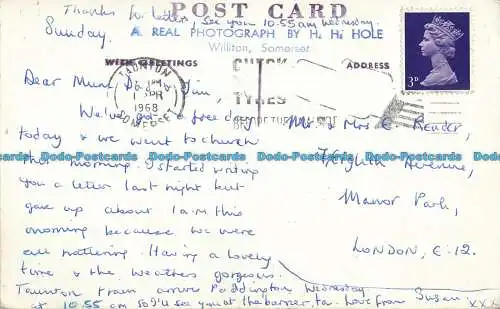 Thanks for letter, see you 10.55 am Wednesday.
POST CARD
Sunday. A REAL PHOTOGRAPH BY H. H. HOLE
Williton, Somerset
WITH GREETINGS
ADDRESS
TAUNTON
1968
SOMERSET
CHECK
TYRES
3D
Dear Mum, Jim,
We've got a free day
today & we went to church
this morning. I started writing
you a letter last night but
gave up about 1 a.m this
morning because we were
all nattering. Having a lovely
time & the weathers gorgeous.
Taunton train arrives Paddington Wednesday
at 10.55 am so I'll see you at the barrier, ta. Love from Susan xxx
Mr. & Mrs E. Render,
Avenue,
Manor Park,
LONDON, E.12.
Dodo-Postcards Dodo-Postcards Dodo-Postcards Dodo-Postcards Dodo-Postcards